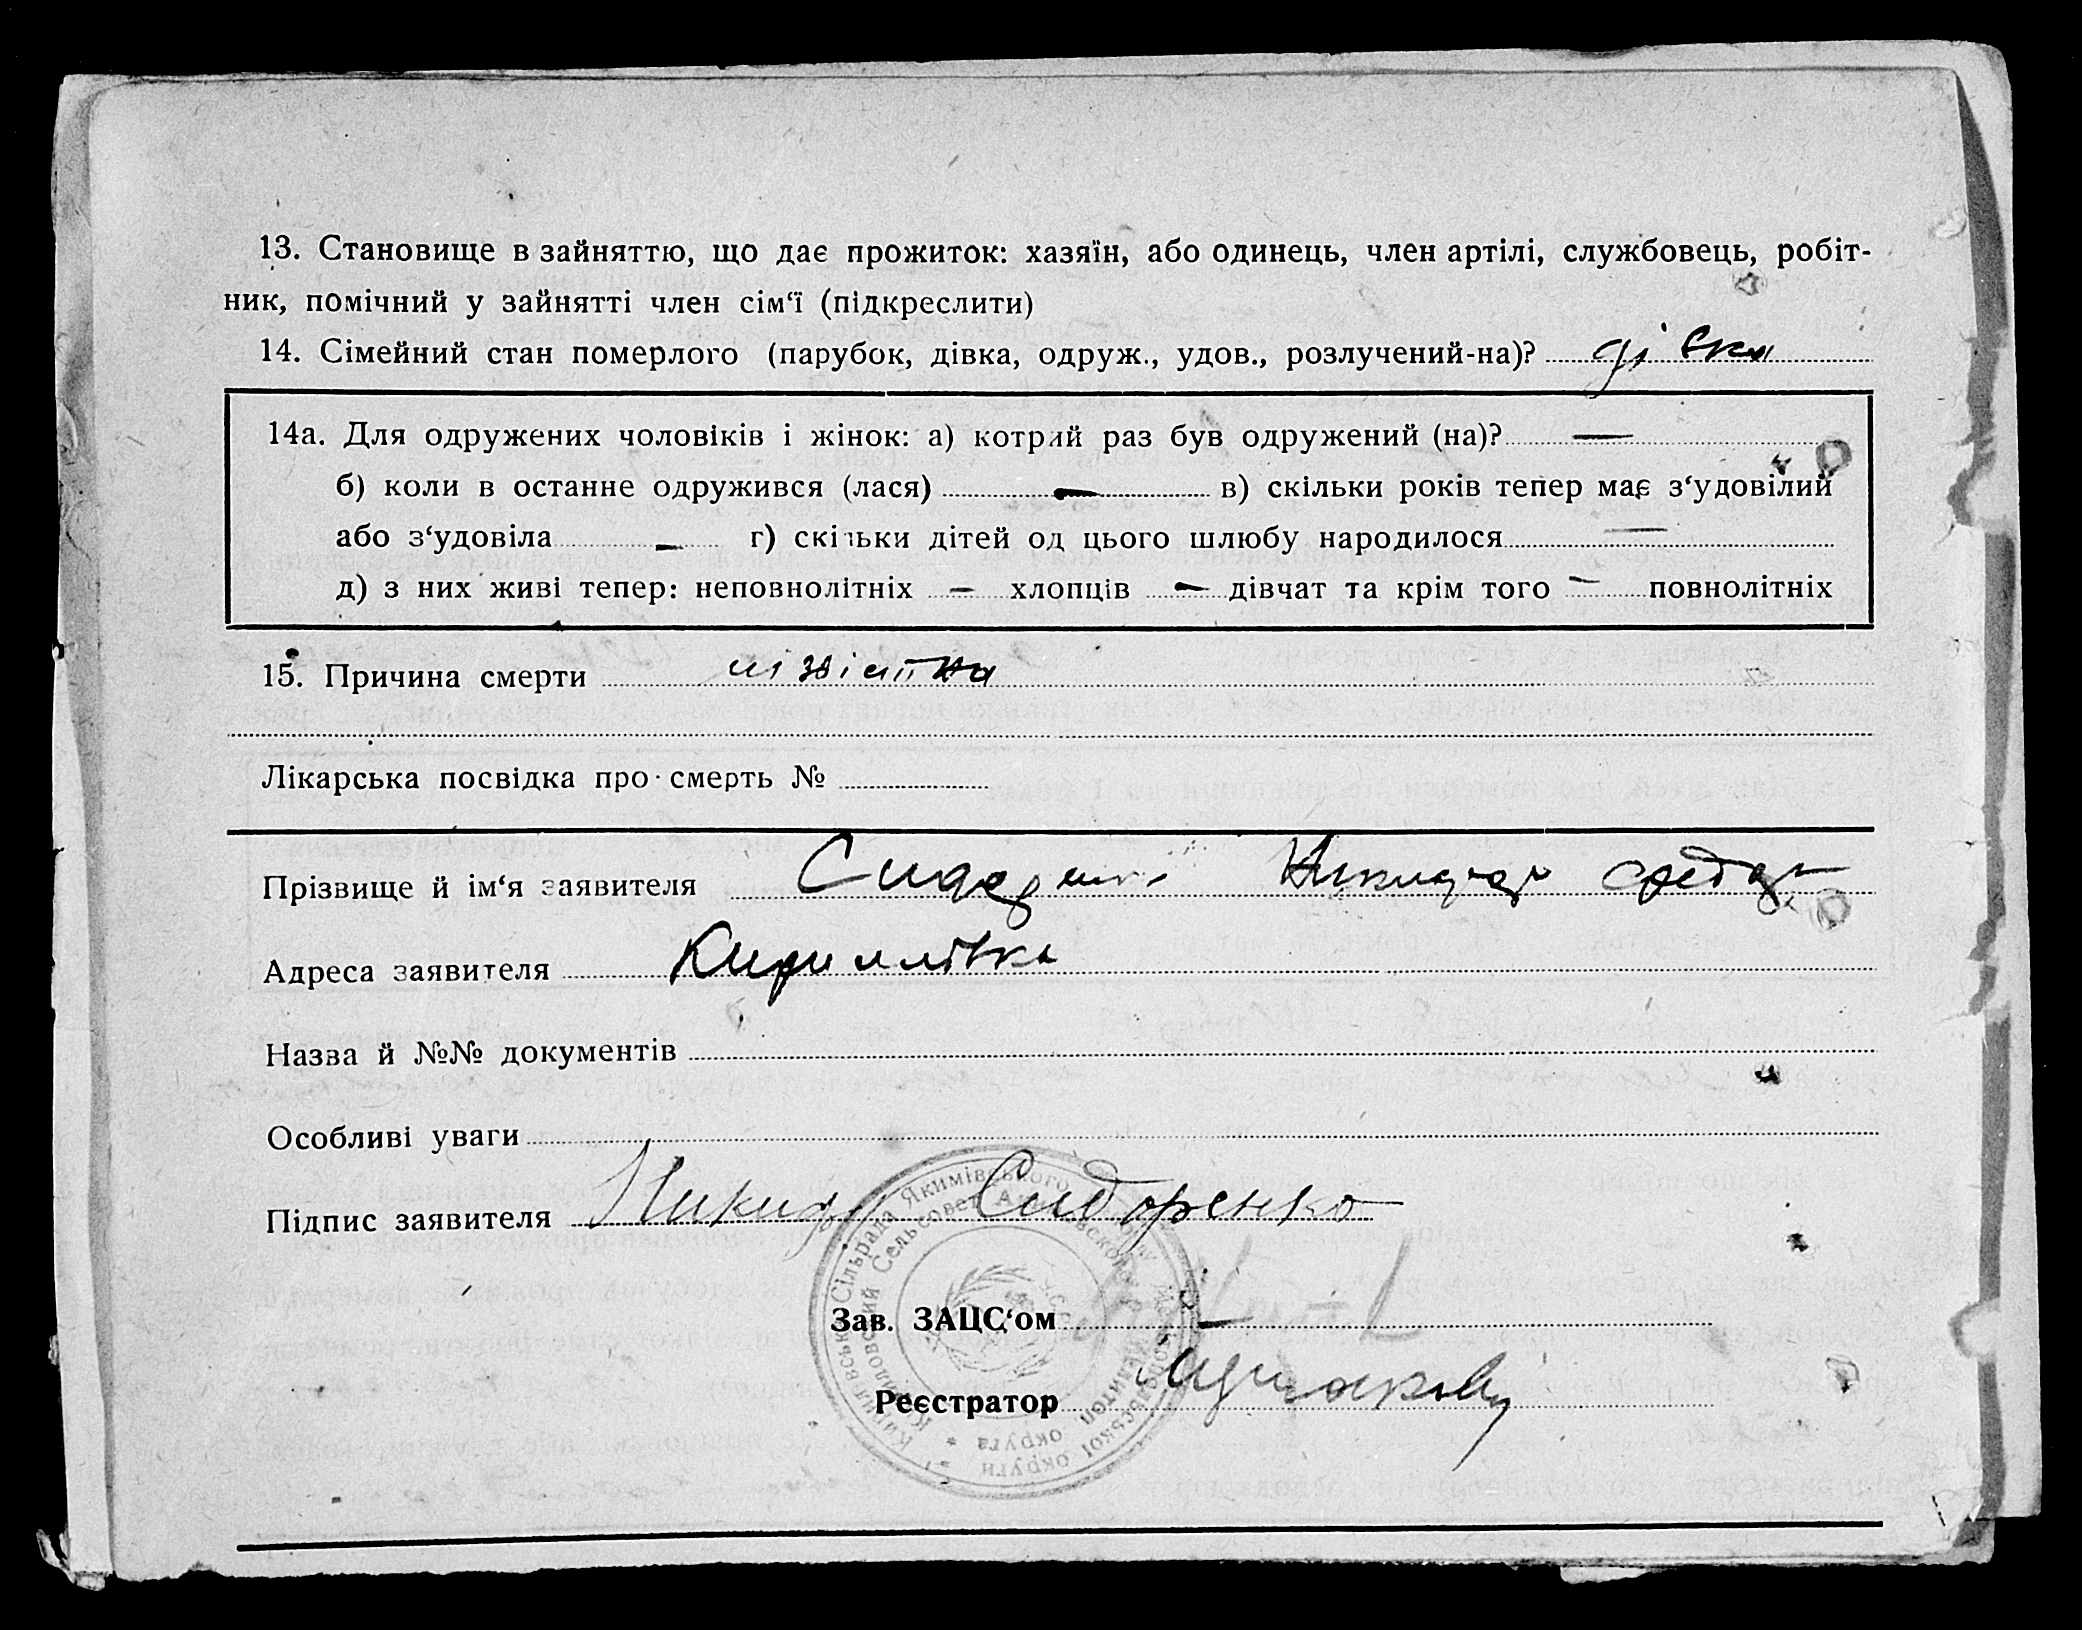 13. Становище в зайняттю, що дає прожиток: хазяїн, або одинець, член артілі, службовець, робіт-
ник, помічний у зайнятті член сім‘ї (підкреслити)
14. Сімейний стан померлого (парубок, дівка, одруж., удов., розлучений-на)? дівка
14а. Для одружених чоловіків і жінок: а) котрий раз був одружений (на)? —
б) коли в останне одружився (лася) — в) скільки років тепер має з‘удовілий
або з‘удовіла — г) скільки дітей од цього шлюбу народилося —
д) з них живі тепер: неповнолітніх — хлопців — дівчат та крім того — повнолітніх
15. Причина смерти
Лікарська посвідка про смерть №
Прізвище й ім‘я заявителя
Адреса заявителя Кириллівка
Назва й №№ документів
Особливі уваги
Підпис заявителя Никида Сидоренко
Зав. ЗАЦС‘ом
Реєстратор
Сільрада Якимівського
Сельсовет
округи
округа